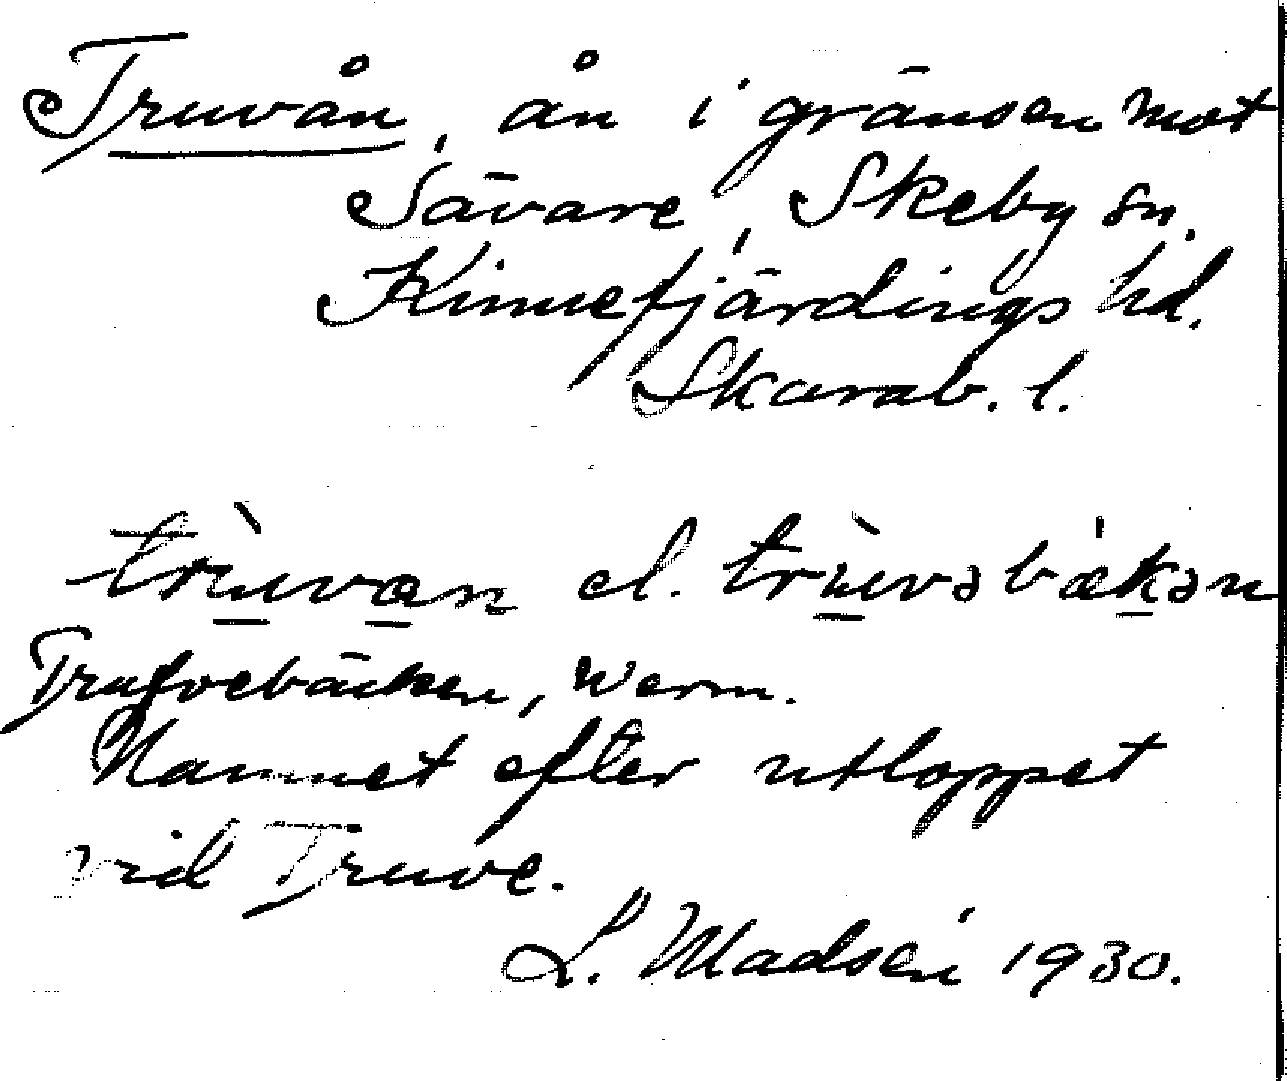 Truvån, ån i gränsen mot
Sävare, Skeby sn.
Kinnefjärdings hd.
Skarab. l.
trùvan el. trùvəbækən
Trufvebäcken, Werm.
Namnet efter utloppet
vid Truve.
L. Madsén 1930.